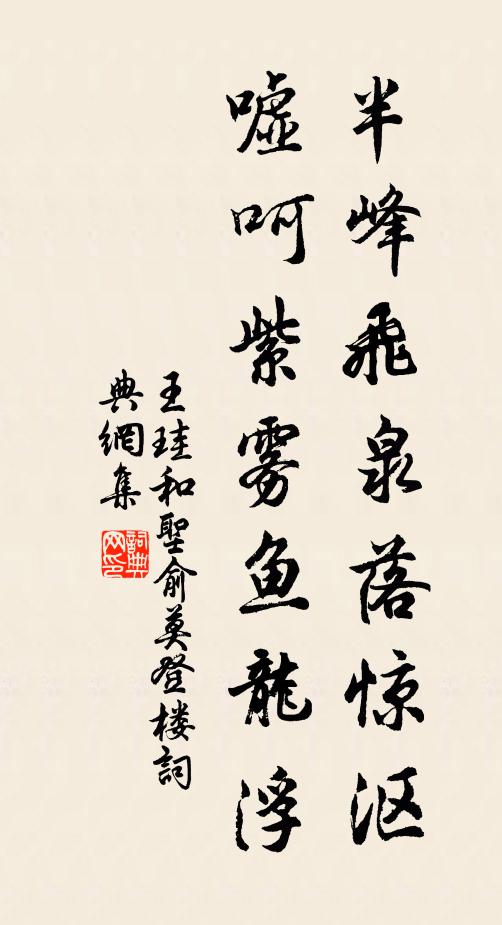 半峰飛泉落惊沤
嘘呵紫雾鱼龍浮
王珪和聖俞莫登楼詞
典網集
詞典网印